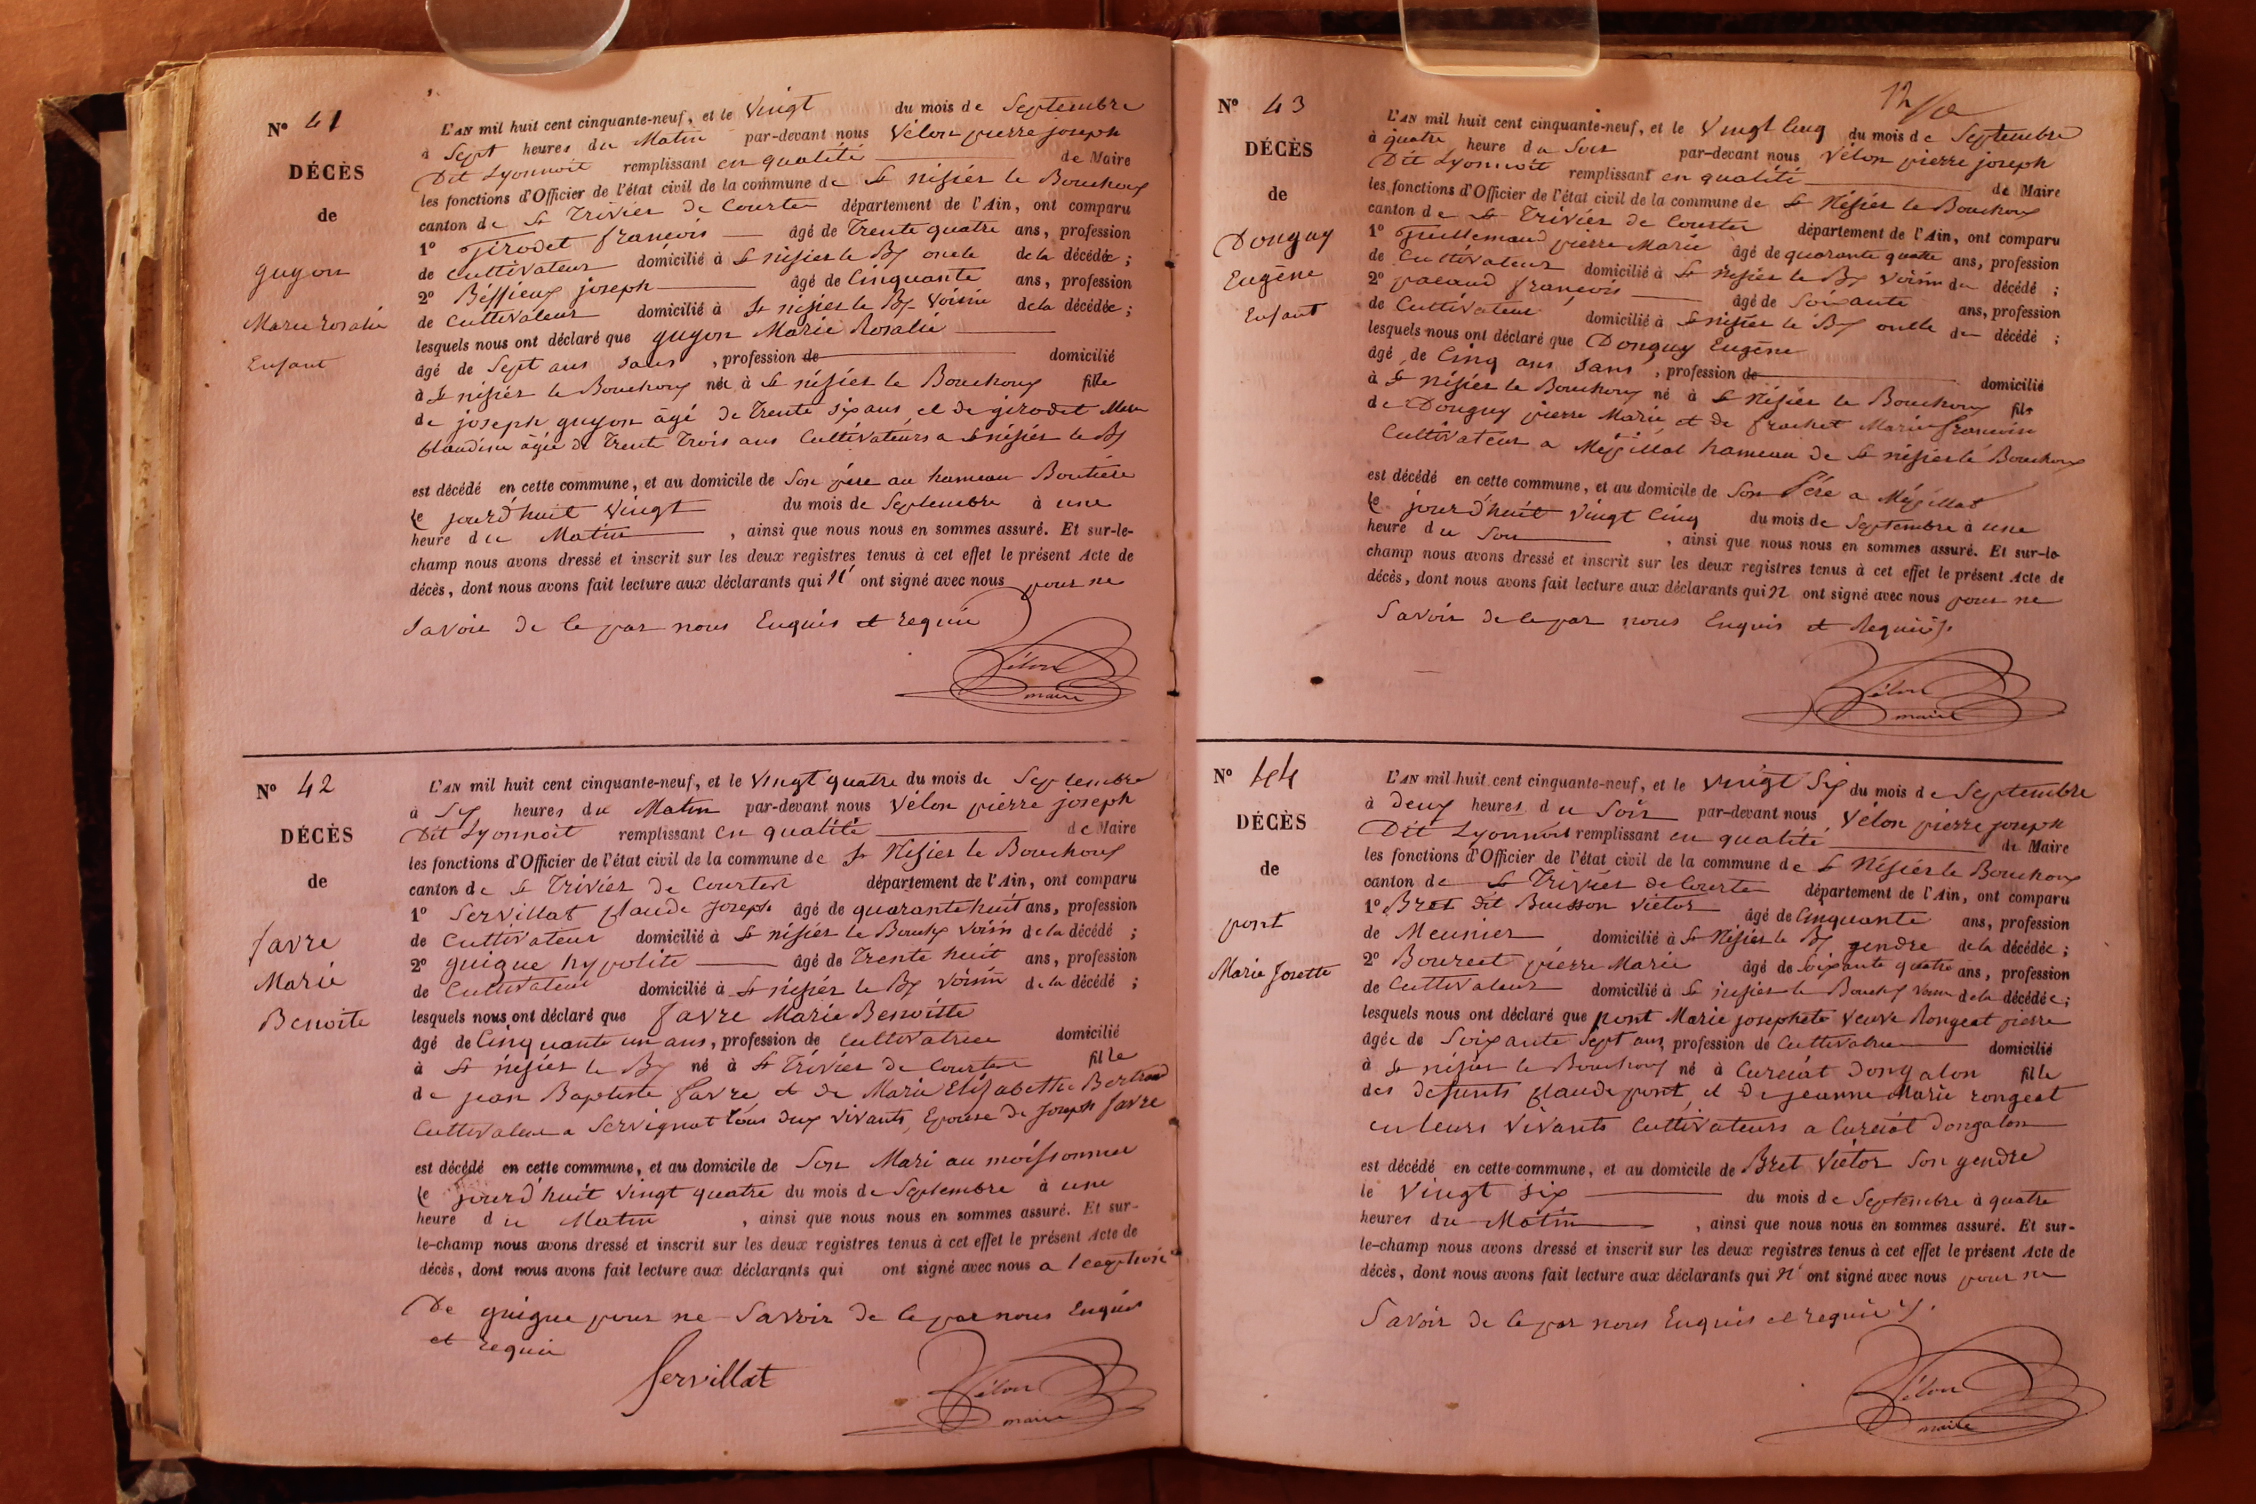 N° 41
DÉCÈS
de
guyon
Marie rosalie
Enfant
L'AN mil huit cent cinquante-neuf, et le Vingt du mois de Septembre
à Sept heures du Matin par-devant nous Vélon pierre joseph
Dit Lyonnoit remplissant en qualité de Maire
les fonctions d'Officier de l'état civil de la commune de St nisier le Bouchoux
canton de St Trivier de Courtes département de l'Ain, ont comparu
1° Girodet francois âgé de Trente quatre ans, profession
de Cultivateur domicilié à St nisier le Bx oncle de la décédée ;
2° Béssieux joseph âgé de Cinquante ans, profession
de Cultivateur domicilié à St nisier le Bx Voisin de la décédée ;
lesquels nous ont déclaré que guyon Marie Rosalie
âgé de Sept ans Sans , profession de domicilié
à St nisier le Bouchoux née à St nisier le Bouchoux fille
de joseph guyon âgé de Trente six ans et de girodet Marie
Claudine âgée de Trente Trois ans Cultivateurs a St nisier le Bx
est décédé en cette commune, et au domicile de Son père au hameau Boutière
le jourd'huit Vingt du mois de Septembre à une
heure du Matin , ainsi que nous nous en sommes assuré. Et sur-le-
champ nous avons dressé et inscrit sur les deux registres tenus à cet effet le présent Acte de
décès, dont nous avons fait lecture aux déclarants qui n' ont signé avec nous pour ne
Savoir de ce par nous Enquis et requis
Vélon
maire
N° 42
DÉCÈS
de
favre
Marie
Benoite
L'AN mil huit cent cinquante-neuf, et le Vingt quatre du mois de Septembre
à Six heures du Matin par-devant nous Vélon pierre joseph
Dit Lyonnoit remplissant en qualité de Maire
les fonctions d'Officier de l'état civil de la commune de St Nisier le Bouchoux
canton de St Trivier de Courtes département de l'Ain, ont comparu
1° Servillat Claude Joseph âgé de quarante huit ans, profession
de Cultivateur domicilié à St nisier le Bouchx Voisin de la décédé ;
2° guigue hypolite âgé de Trente huit ans, profession
de Cultivateur domicilié à St nisier le Bx Voisin de la décédé ;
lesquels nous ont déclaré que favre Marie Benoitte
âgé de Cinquante un ans, profession de Cultivatrice domicilié
à St nisier le Bx né à St Trivier de Courtes fille
de jean Baptiste favre et de Marie Elizabette Bertrand
Cultivateur a Servignat tous deux Vivants, Epouse de Joseph favre
est décédé en cette commune, et au domicile de Son Mari au moissonnier
le jourd'huit Vingt quatre du mois de Septembre à une
heure du Matin , ainsi que nous nous en sommes assuré. Et sur-
le-champ nous avons dressé et inscrit sur les deux registres tenus à cet effet le présent Acte de
décès, dont nous avons fait lecture aux déclarants qui ont signé avec nous a l'eception
De guigue pour ne Savoir de ce par nous Enquis
et requis
Servillat
Vélon
maire
N° 43
DÉCÈS
de
Donguy
Eugène
Enfant
L'AN mil huit cent cinquante-neuf, et le Vingt Cinq du mois de Septembre
à quatre heure du Soir par-devant nous Vélon pierre joseph
Dit Lyonnoit remplissant en qualité de Maire
les fonctions d'Officier de l'état civil de la commune de St Nisier le Bouchoux
canton de St Trivier de Courtes département de l'Ain, ont comparu
1° Guillemaud pierre Marie âgé de quarante quatre ans, profession
de Cultivateur domicilié à St nisier le Bx Voisin du décédé ;
2° pacaud françois âgé de Soixante ans, profession
de Cultivateur domicilié à St nisier le Bx oncle du décédé ;
lesquels nous ont déclaré que Donguy Eugène
âgé de Cinq ans Sans , profession de domicilié
à St nisier le Bouchoux né à St Nisier le Bouchoux fils
de Donguy pierre Marie et de frachet Marie francoise
Cultivateur a Mézillat hameau de St nisier le Bouchoux
est décédé en cette commune, et au domicile de Son Père a Mézillat
le jourd'huit Vingt Cinq du mois de Septembre à une
heure du Soir , ainsi que nous nous en sommes assuré. Et sur-le-
champ nous avons dressé et inscrit sur les deux registres tenus à cet effet le présent Acte de
décès, dont nous avons fait lecture aux déclarants qui n ont signé avec nous pour ne
Savoir de ce par nous Enquis et Requis
Vélon
maire
N° 44
DÉCÈS
de
pont
Marie Josette
L'AN mil huit cent cinquante-neuf, et le Vingt Six du mois de Septembre
à Deux heures du Soir par-devant nous Vélon pierre joseph
Dit Lyonnoit remplissant en qualité de Maire
les fonctions d'Officier de l'état civil de la commune de St Nisier le Bouchoux
canton de St Trivier de Courtes département de l'Ain, ont comparu
1° Bret dit Buisson Victor âgé de Cinquante ans, profession
de Meunier domicilié à St Nisier le Bx gendre de la décédée ;
2° Bourcet pierre Marie âgé de Soixante quatre ans, profession
de Cultivateur domicilié à St nisier le Bouchx Voisin de la décédée ;
lesquels nous ont déclaré que pont Marie josephete Veuve Rongeat pierre
âgée de Soixante Sept ans, profession de Cultivatrice domicilié
à St nisier le Bouchoux né à Curciat Dongalon fille
des defunts Claude pont, et De jeanne Marie rongeat
en leurs Vivants Cultivateurs a Curciat Dongalon
est décédé en cette commune, et au domicile de Bret Victor Son gendre
le Vingt Six du mois de Septembre à quatre
heures du Matin , ainsi que nous nous en sommes assuré. Et sur-
le-champ nous avons dressé et inscrit sur les deux registres tenus à cet effet le présent Acte de
décès, dont nous avons fait lecture aux déclarants qui n' ont signé avec nous pour ne
Savoir de ce par nous Enquis et requis
Vélon
maire